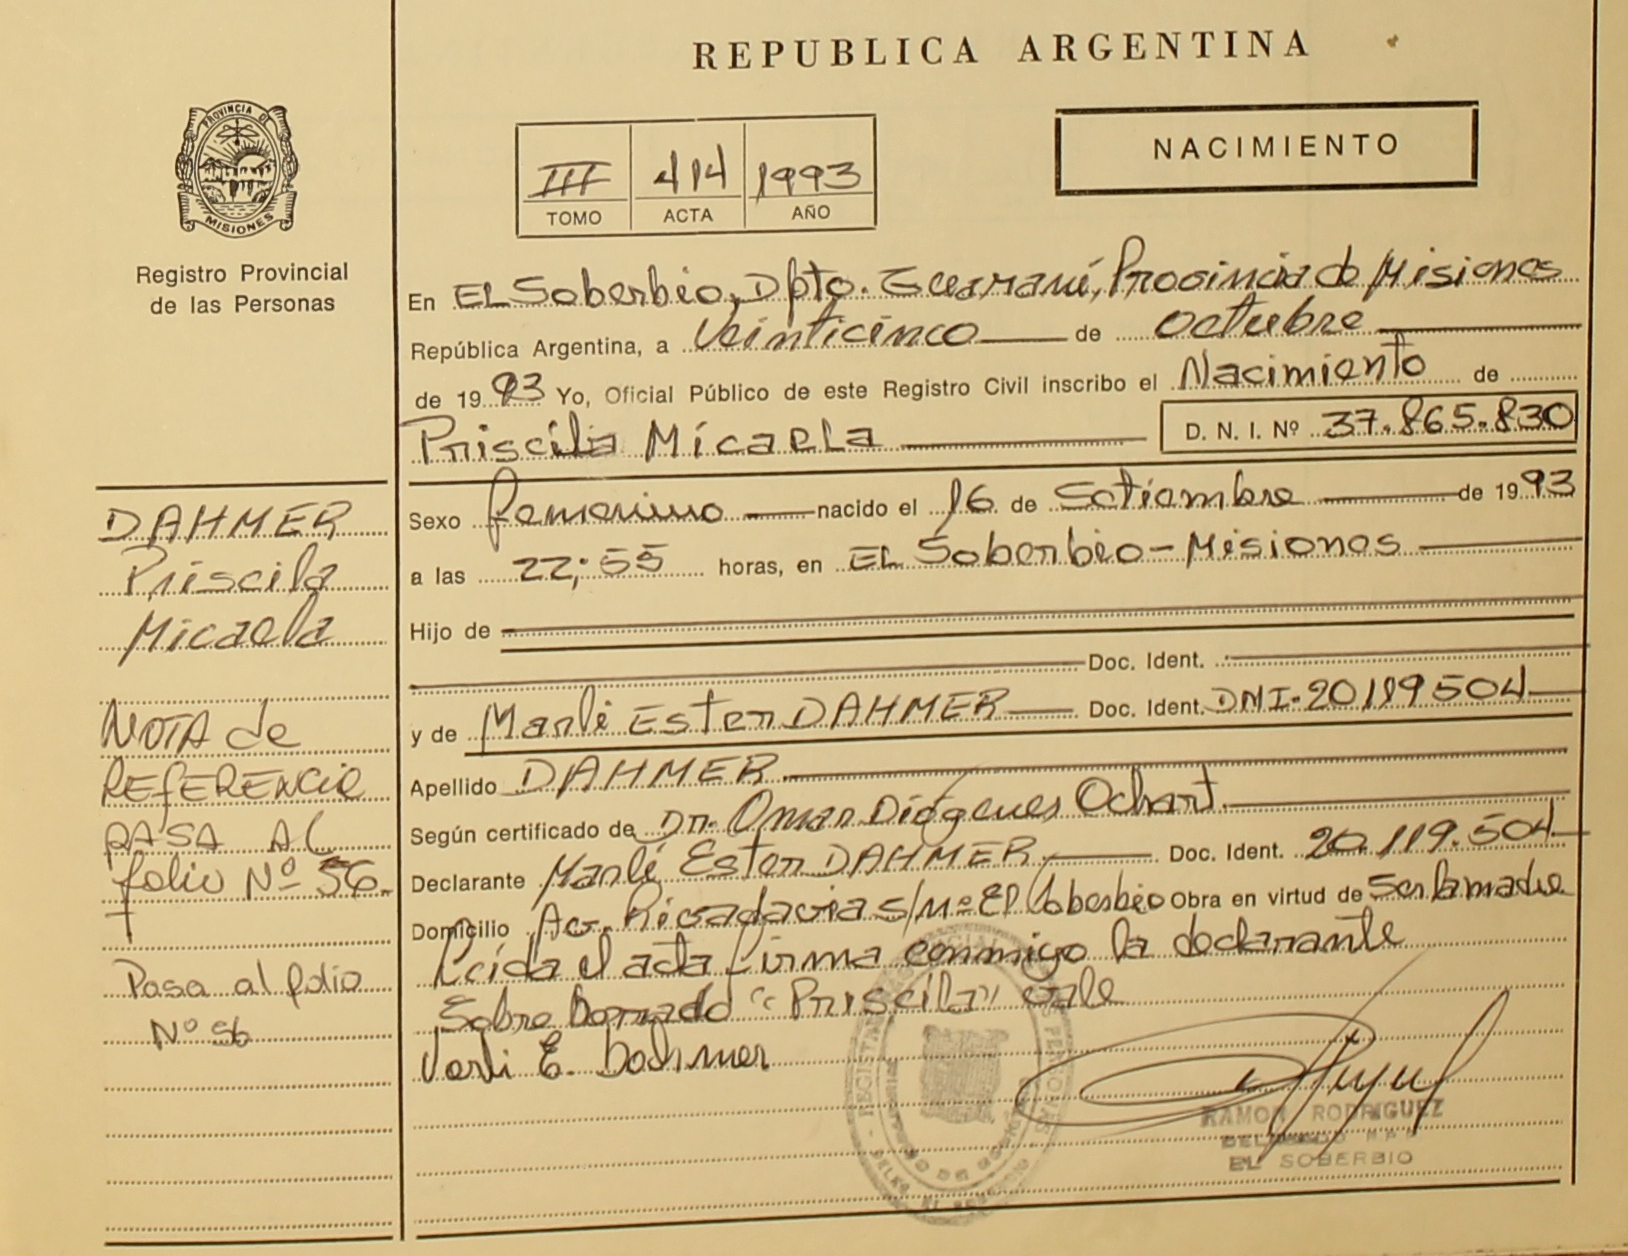 REPUBLICA ARGENTINA
PROVINCIA DE
MISIONES
Registro Provincial
de las Personas
III 414 1993
TOMO ACTA AÑO
NACIMIENTO
En EL Soberbio, Dpto. Guaraní, Provincia de Misiones
República Argentina, a Veinticinco de octubre
de 1993 Yo, Oficial Público de este Registro Civil inscribo el Nacimiento de
Priscila Micaela D. N. I. Nº 37.865.830
Sexo femenino nacido el 16 de Setiembre de 1993
a las 22:55 horas, en EL Soberbio-Misiones
Hijo de
Doc. Ident.
y de Marlí Ester DAHMER Doc. Ident. DNI-20119504
Apellido DAHMER
Según certificado de Dr. Omar Diógenes Ochart
Declarante Marlí Ester DAHMER Doc. Ident. 20.119.504
Domicilio Av. Rivadavia s/nº El Soberbio Obra en virtud de Ser la madre
Leída el acta firma conmigo la declarante
Sobre borrado "Priscila" vale
E. Dahmer
RAMON RODRIGUEZ
EL SOBERBIO
DAHMER
Priscila
Micaela
NOTA de
REFERENCIA
PASA AL
folio Nº 56.
Pasa al folio
Nº 56